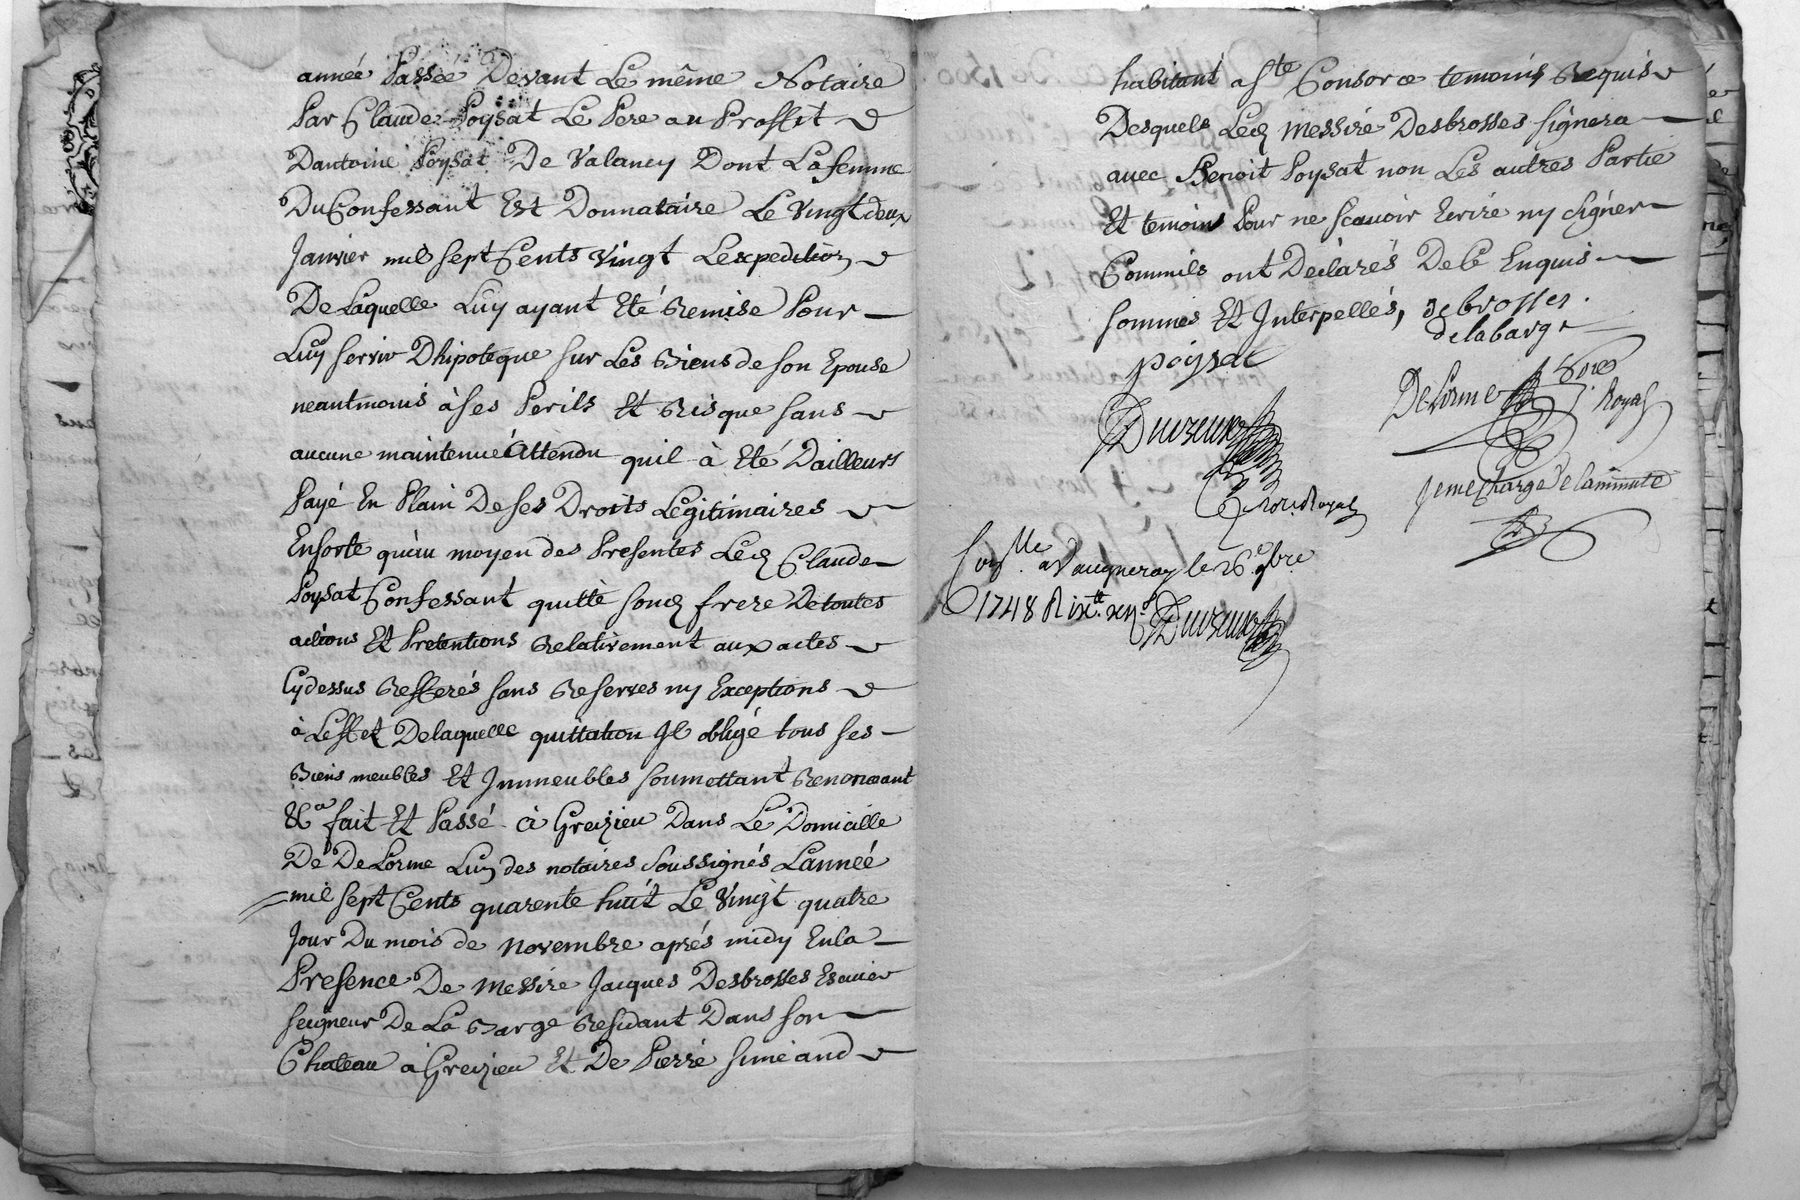 année Passée Devant Le même Notaire
Par Claude Poysat Le Pere au Proffit
Dantoine Poysat De Valancy Dont Lafemme
Du Confessant Est Donnataire Le Vingtdeux
Janvier mil sept Cents Vingt Lexpedition
De Laquelle Luy ayant Eté Remise Pour
Luy servir Dhipoteque sur Les Biens de son Epouse
neantmoins à ses Perils Et Risque sans
aucune maintenue Attendu quil à Eté Dailleurs
Payé En Plain De ses Droits Legitimaires
Ensorte qu'au moyen des Presentes Led Claude
Poysat Confessant quitte sond frere Detoutes
actions Et Pretentions Relativement aux actes
Cydessus Refferés sans Reserves ny Exceptions
à Leffet Delaquelle quittation Il obligé tous ses
Biens meubles Et Immeubles soumettant Renoncant
&a fait Et Passé à Greizieu Dans Le Domicille
De DeLorme Lun des notaires Soussignés Lanneé
mil sept Cents quarente huit Le Vingt quatre
Jour Du mois de Novembre aprés midy Enla
Presence De Messire Jacques Desbrosses Escuier
seigneur De La Barge Residant Dans son
Chateau à Greizieu Et De Pierre simeand
habitant a Ste Consorce temoins Requis
Desquels Led Messire Desbrosses signera
avec Benoit Poysat non Les autres Partie
Et temoins Pour ne scavoir Ecrire ny signer
Commils ont Déclarés De Ce Enquis
sommes Et Interpellés, debrosses.
delabarge
poisat
DeLorme Nore Royal
Not. Royal
Jeme Charge de laminute
Conlle a Vaugneray le 26e 9bre
1748 R